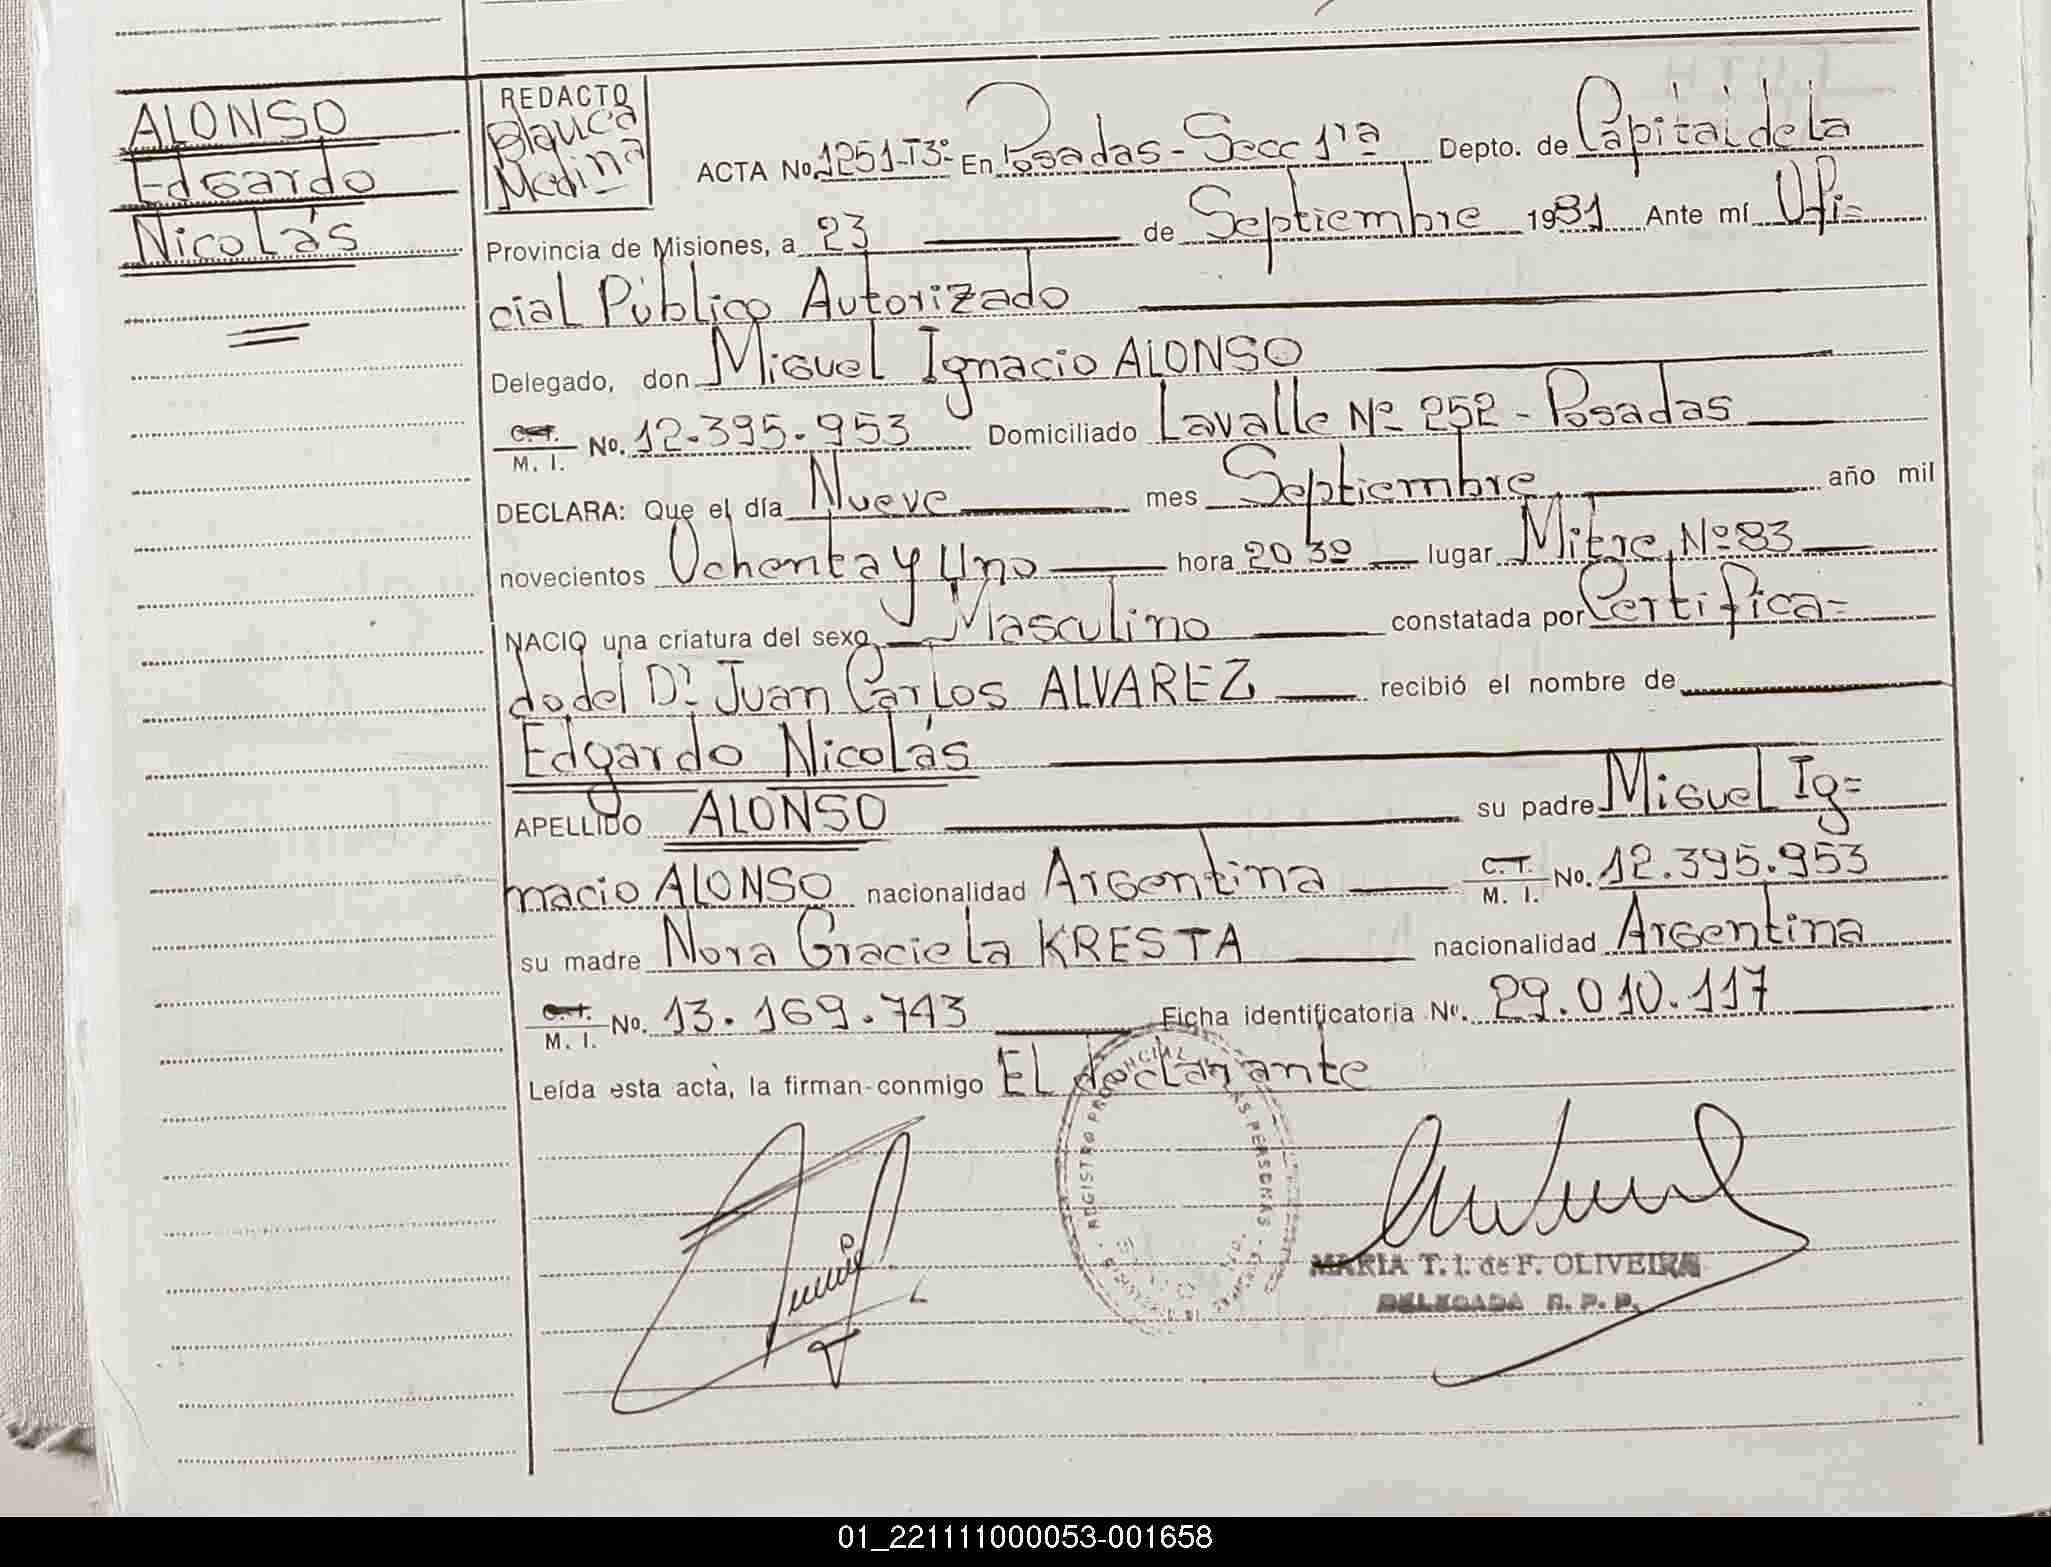 ALONSO
Edgardo
Nicolás
REDACTO
Blanca
Medina
ACTA No 1251-T3º En Posadas - Secc 1ra Depto. de Capital de la
Provincia de Misiones, a 23 de Septiembre 1981 Ante mí Ofi=
cial Público Autorizado
Delegado, don Miguel Ignacio ALONSO
C.T. M. I. No. 12.395.953 Domiciliado Lavalle Nº 252 - Posadas
DECLARA: Que el día Nueve mes Septiembre año mil
novecientos Ochenta y Uno hora 20 30 lugar Mitre Nº 83
NACIO una criatura del sexo Masculino constatada por Certifica=
do del Dr. Juan Carlos ALVAREZ recibió el nombre de
Edgardo Nicolás
APELLIDO ALONSO su padre Miguel Ig=
nacio ALONSO nacionalidad Argentina C.T. M. I. No. 12.395.953
su madre Nora Graciela KRESTA nacionalidad Argentina
C.T. M. I. No. 13.169.743 Ficha identificatoria No. 29.010.117
Leída esta acta, la firman conmigo El declarante
REGISTRO PROVINCIAL LAS PERSONAS
MARIA T. I. de F. OLIVEIRA
DELEGADA R. P. P.
01_221111000053-001658